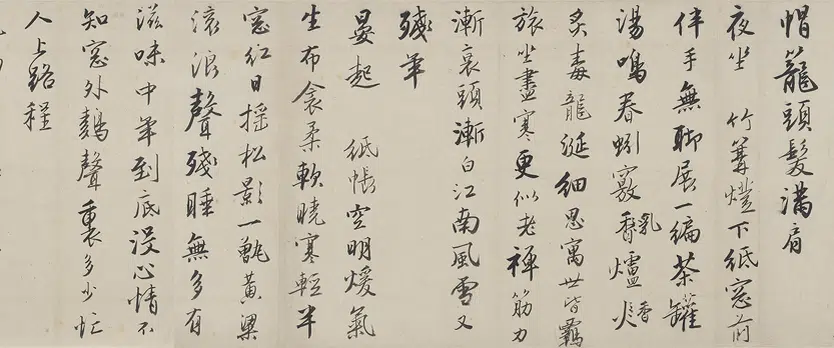 帽籠頭髮滿肩
夜坐 竹篝燈下紙窓前
伴手無聊展一編茶罐
湯鳴春蚓竅香乳爐火香
炙毒龍涎細思寓世皆羈
旅坐盡寒更似老禪筋力
漸衰頭漸白江南風雪又
殘年
晏起 紙帳空明煖氣
生布衾柔軟曉寒輕半
窓紅日搖松影一甑黃粱
滾浪聲殘睡無多有
滋味中年到底沒心情不
知窓外鷄聲裏多少忙
人上路程